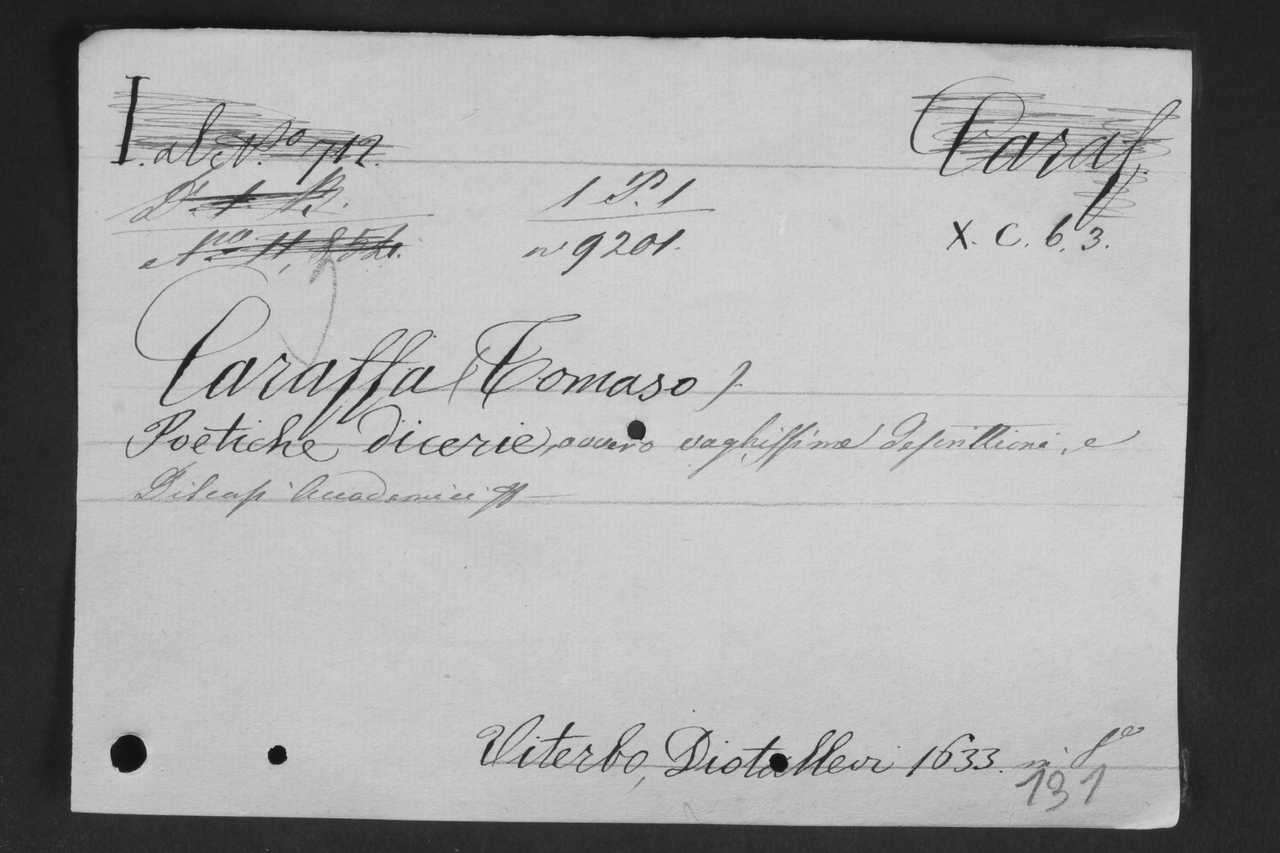 I. al N.º 712. Caraf.
1 P. 1
nº 9201. X. C. 6. 3.
Nº 11,854.
Caraffa (Tomaso)
Poetiche dicerie, overo vaghissime descrittioni, e
Discorsi Accademici
Viterbo, Diotallevi 1633. in 8º
131